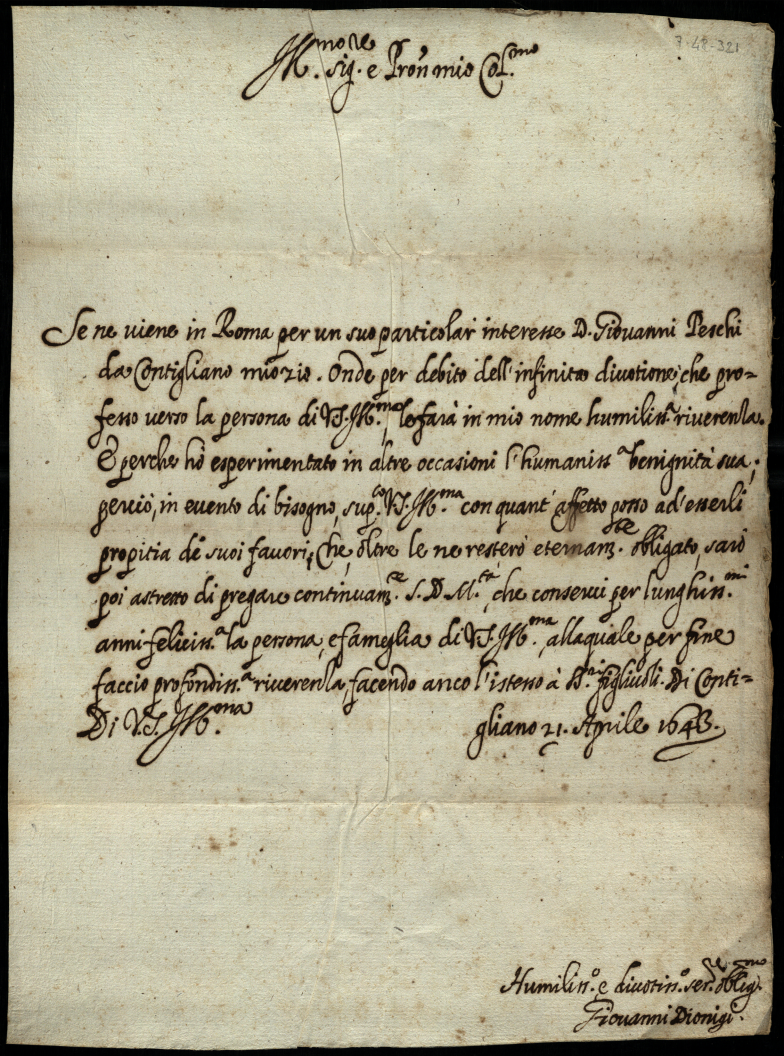 7-48-321
Ill.mo Sig.re e Pron mio Col.mo
Se ne viene in Roma per un suo particolar interesse D. Giovanni Peschi
da Contigliano mio zio. Onde per debito dell'infinita divotione, che pro-
fesso verso la persona di V.S. Ill.ma, le farà in mio nome humiliss.a riverenza.
E perche hò esperimentato in altre occasioni l'humaniss.a benignità sua;
perciò, in evento di bisogno, sup.co V.S. Ill.ma con quant'affetto posso ad'esserli
propitia de suoi favori; Che, oltre le ne resterò eternam.te obligato, sarò
poi astretto di pregare continuam.te S. D. M.tà, che conservi per lunghiss.mi
anni feliciss.a la persona, e fameglia di V.S. Ill.ma, alla quale per fine
faccio profondiss.a riverenza, facendo anco l'istesso à figliuoli. Di Conti-
Di V.S. Ill.ma gliano 21. Aprile 1643.
Humiliss.o e divotiss.o ser.re oblig.mo
Giovanni Dionigi.